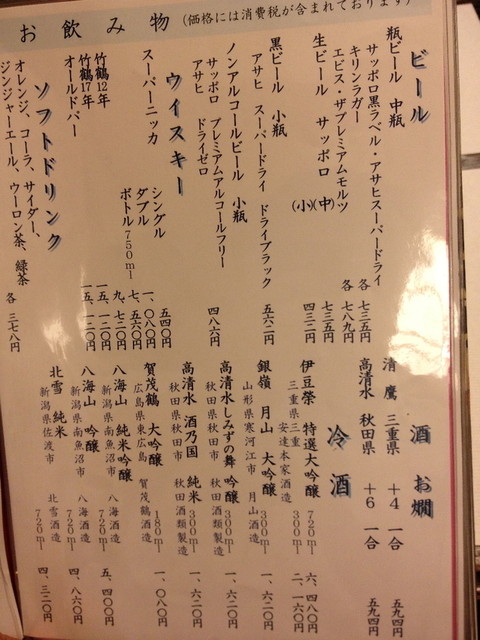 お飲み物（価格には消費税が含まれております）
ビール
瓶ビール 中瓶
サッポロ黒ラベル・アサヒスーパードライ 各 七三五円
キリンラガー
エビス・ザプレミアムモルツ 各 七八九円
生ビール サッポロ （中） 七三五円
（小） 四三二円
黒ビール 小瓶
アサヒ スーパードライ ドライブラック 五六二円
ノンアルコールビール 小瓶
サッポロ プレミアムアルコールフリー
アサヒ ドライゼロ 四八六円
ウイスキー
スーパーニッカ シングル 五四〇円
ダブル 一、〇八〇円
ボトル 750ml 七、五六〇円
竹鶴12年 九、七二〇円
竹鶴17年 一五、一二〇円
オールドパー 一五、一二〇円
ソフトドリンク
オレンジ、コーラ、サイダー、
ジンジャーエール、ウーロン茶、緑茶 各 三七八円
酒 お燗
清鷹 三重県 ＋4 一合 五九四円
高清水 秋田県 ＋6 一合 五九四円
冷酒
伊豆榮 特選大吟醸 720ml 六、四八〇円
三重県三重 安達本家酒造 300ml 二、一六〇円
銀嶺 月山 大吟醸 300ml 一、六二〇円
山形県寒河江市 月山酒造
高清水しみずの舞 吟醸 300ml 一、六二〇円
秋田県秋田市 秋田酒類製造
高清水 酒乃国 純米 300ml 一、六二〇円
秋田県秋田市 秋田酒類製造
賀茂鶴 大吟醸 180ml 一、〇八〇円
広島県東広島 賀茂鶴酒造
八海山 純米吟醸 720ml 五、四〇〇円
新潟県南魚沼市 八海酒造
八海山 吟醸 720ml 四、八六〇円
新潟県南魚沼市 八海酒造
北雪 純米 720ml 四、三二〇円
新潟県佐渡市 北雪酒造